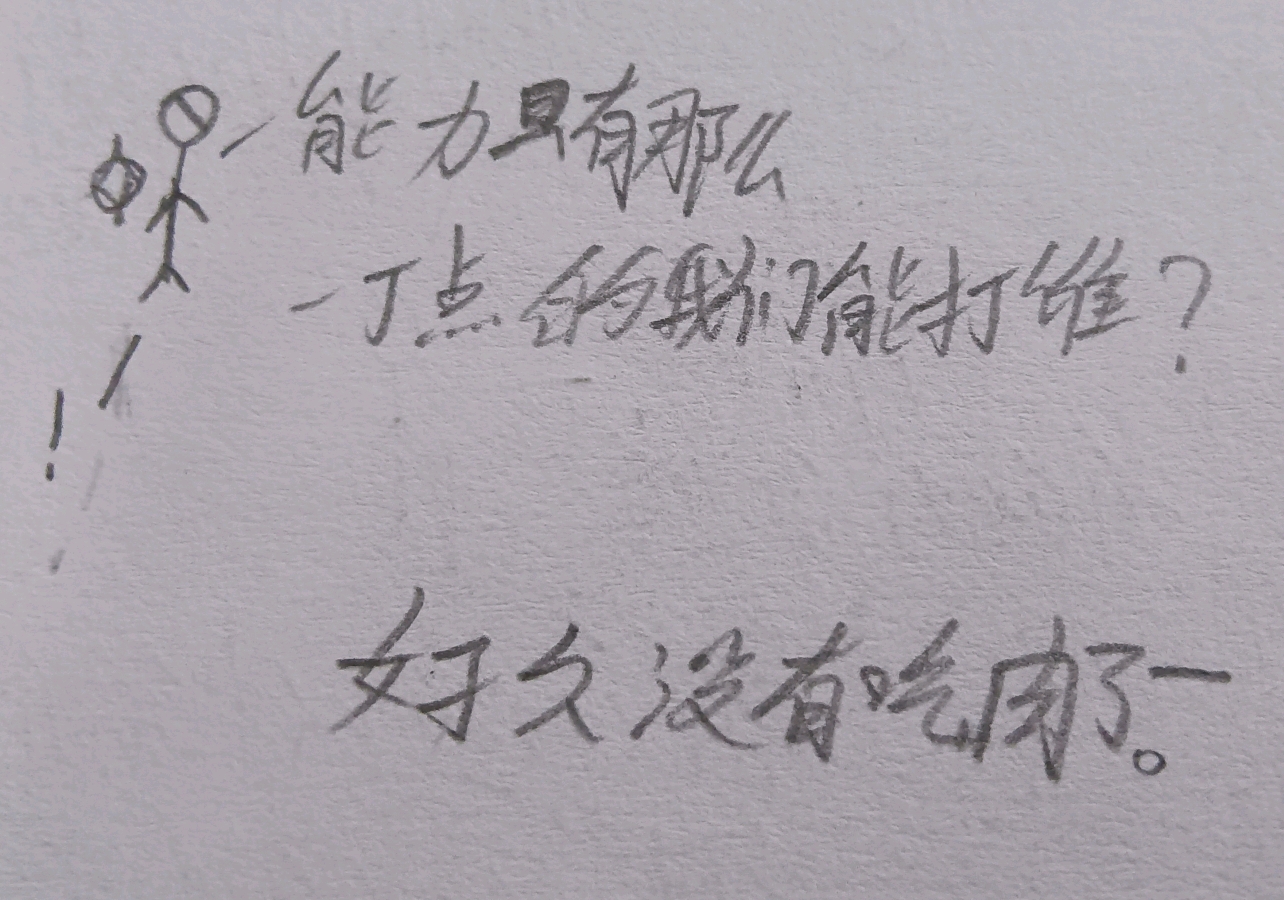 能力只有那么
一丁点的我们能打谁?
!
好久没有吃肉了一。